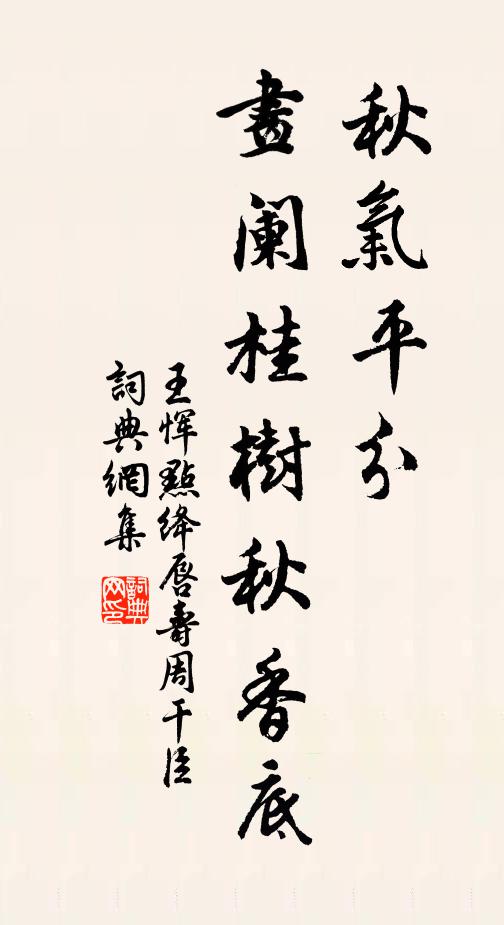 秋氣平分
畫阑桂樹秋香底
王恽點绛唇壽周干臣
詞典網集
詞典網印